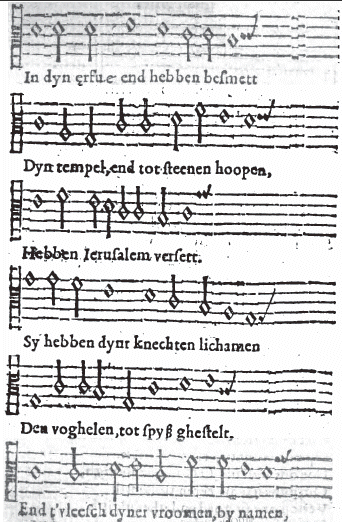 In dyn erfue end hebben besmett
Dyn tempel, end tot steenen hoopen,
Hebben Ierusalem versett.
Sy hebben dynr knechten lichamen
Den voghelen, tot spyß ghestelt,
End t'vleesch dyner vroomen, by namen,